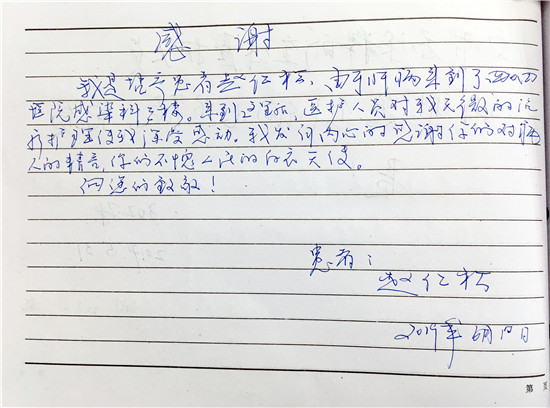 感谢
我是住3床患者赵仁松,由于肝病来到了西山
医院感染科三楼。来到这里后,医护人员对我无微的治
疗护理使我深受感动。我发自内心的感谢你们对病
人的精心,你们不愧人民的白衣天使。
向您们致敬!
患者:
赵仁松
2019年6月10日
第 页